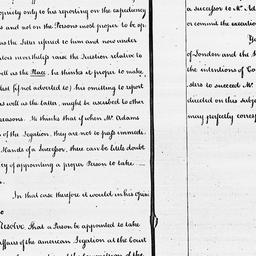 opriety only to his reporting on the expediency
s and not on the Persons most proper to be ap
as the latter referred to him and now under
ators nevertheless raise the Question relative to
well as the Man, he thinks it proper to make
lest (if not adverted to) his omitting to report
as well as the latter, might be ascribed to other
reasons. He thinks that if when Mr. Adams
of the Legation, they are not to pass immedi-
Hands of a Successor, there can be little doubt
cy of appointing a proper Person to take
s.
In that case therefore it would in his Opini
to
Resolve, That a Person be appointed to take
affairs of the american Legation at the Court
a successor to Mr. Ada
or commit the execution
of London and the
the intentions of Co
sters to succeed Mr.
directed on this subje
may perfectly corresp